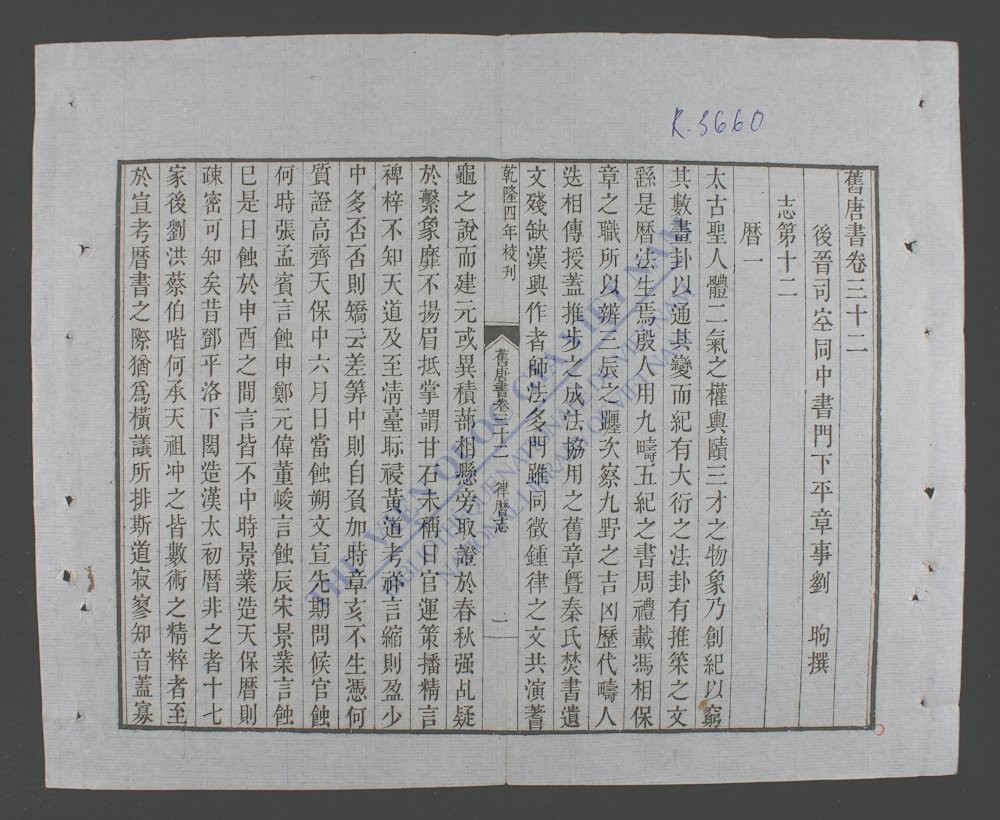 R.3660
舊唐書卷三十二
後晉司空同中書門下平章事劉昫撰
志第十二
曆一
太古聖人體二氣之權輿賾三才之物象乃創紀以窮
其數畫卦以通其變而紀有大衍之法卦有推筞之文
繇是曆法生焉殷人用九疇五紀之書周禮載馮相保
章之職所以辨三辰之躔次察九野之吉凶歷代疇人
迭相傳授蓋推步之成法協用之舊章曁秦氏焚書遺
文殘缺漢興作者師法多門雖同徵鍾律之文共演蓍
乾隆四年校刊
舊唐書卷三十二 律曆志 一
龜之說而建元或異積蔀相懸旁取證於春秋强乩疑
於繫象靡不揚眉抵掌謂甘石未稱日官運策播精言
裨梓不知天道及至淸臺眎祲黃道考祥言縮則盈少
中多否否則矯云差筭中則自負加時章亥不生憑何
質證高齊天保中六月日當蝕朔文宣先期問候官蝕
何時張孟賓言蝕申鄭元偉董峻言蝕辰宋景業言蝕
巳是日蝕於申酉之間言皆不中時景業造天保曆則
疎密可知矣昔鄧平洛下閎造漢太初曆非之者十七
家後劉洪蔡伯喈何承天祖冲之皆數術之精粹者至
於宣考曆書之際猶爲橫議所排斯道寂寥知音蓋寡
THƯ VIỆN QUỐC GIA VIỆT NAM
BIBLIOTHEQUE NATIONALE DU VIETNAM
NATIONAL LIBRARY OF VIETNAM